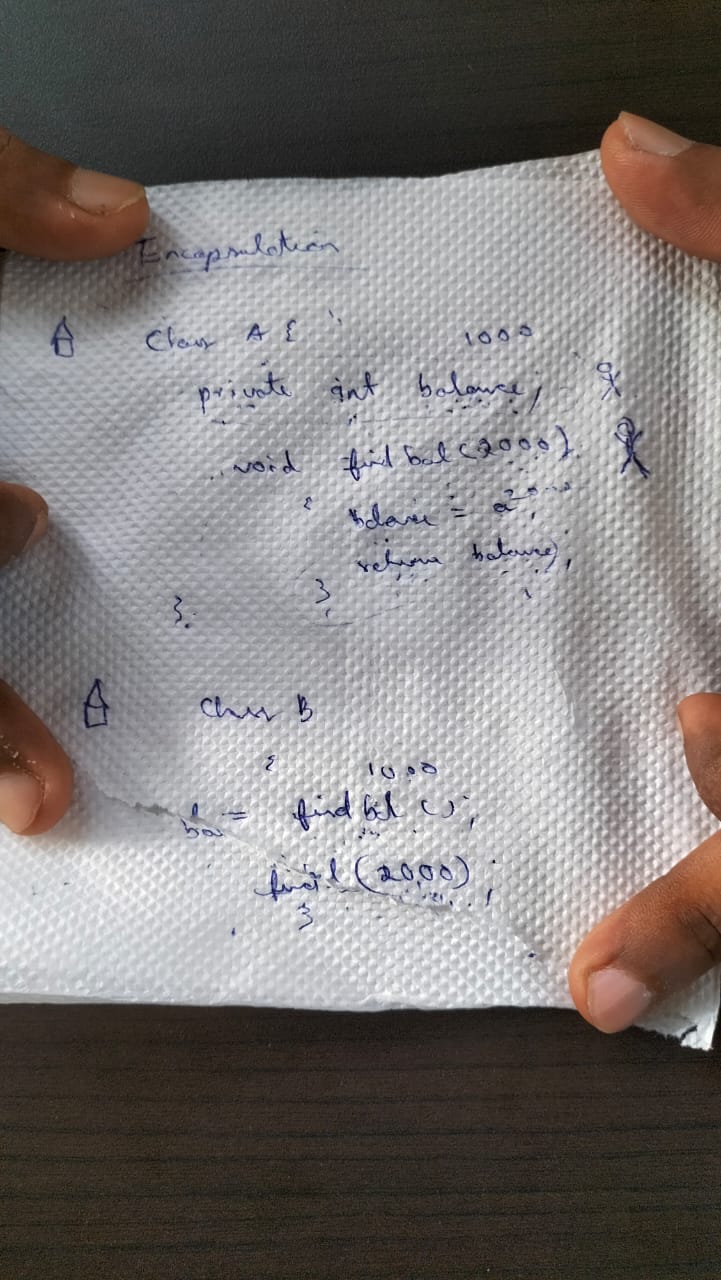 Encapsulation
Class A {
1000
private int balance;
void find bal (2000)
{ balance = a 2000;
return balance;
}
}.
Class B
{ 1000
bal = find bal ();
find (2000);
}